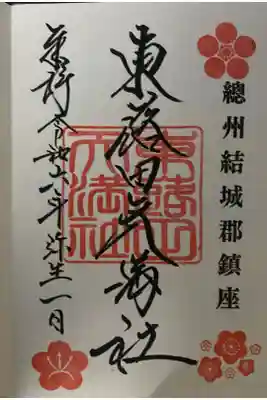 總州結城郡鎮座
東蕗田天満社
東蕗田天満社
令和六年弥生一日